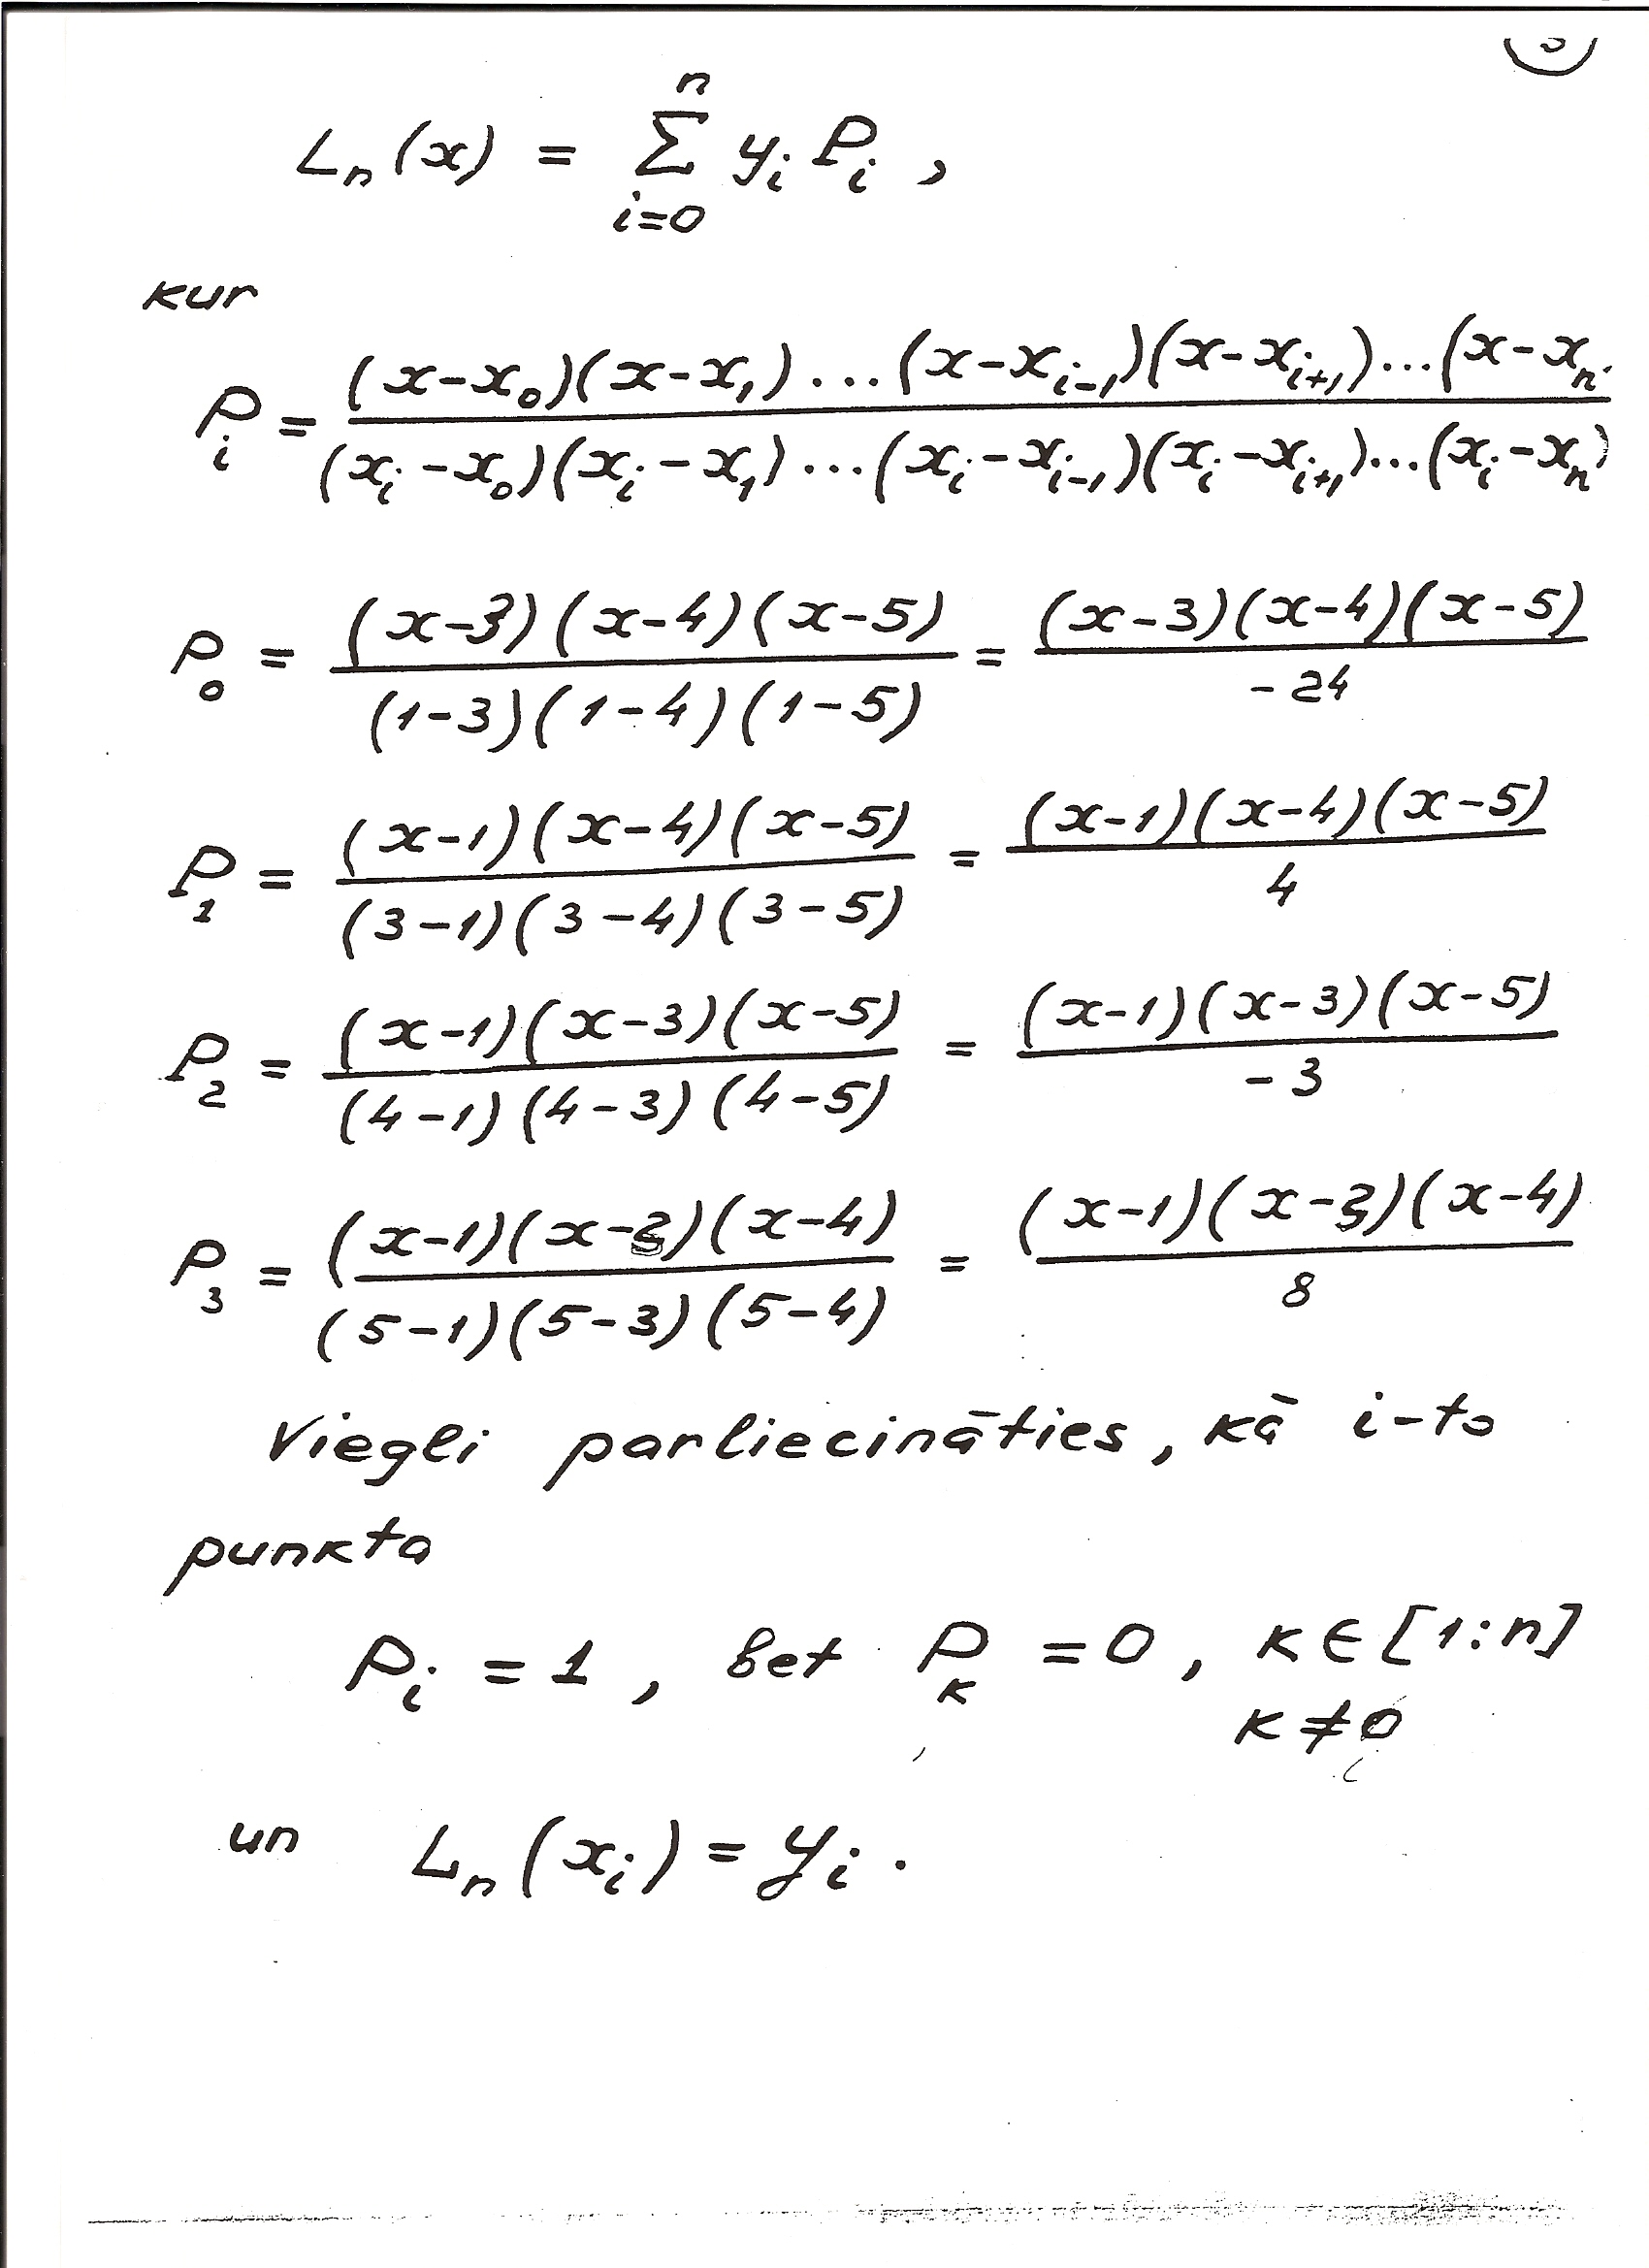 Lₙ(x) = Σ_{i=0}^{n} yᵢ Pᵢ ,
kur
Pᵢ = (x-x₀)(x-x₁)...(x-xᵢ₋₁)(x-xᵢ₊₁)...(x-xₙ / (xᵢ-x₀)(xᵢ-x₁)...(xᵢ-xᵢ₋₁)(xᵢ-xᵢ₊₁)...(xᵢ-xₙ)
P₀ = (x-3)(x-4)(x-5) / (1-3)(1-4)(1-5) = (x-3)(x-4)(x-5) / -24
P₁ = (x-1)(x-4)(x-5) / (3-1)(3-4)(3-5) = (x-1)(x-4)(x-5) / 4
P₂ = (x-1)(x-3)(x-5) / (4-1)(4-3)(4-5) = (x-1)(x-3)(x-5) / -3
P₃ = (x-1)(x-3)(x-4) / (5-1)(5-3)(5-4) = (x-1)(x-3)(x-4) / 8
Viegli parliecināties, kā i-to
punkta
Pᵢ = 1 , bet Pₖ = 0 , k ∈ [1:n]
k ≠ 0
un Lₙ(xᵢ) = yᵢ .